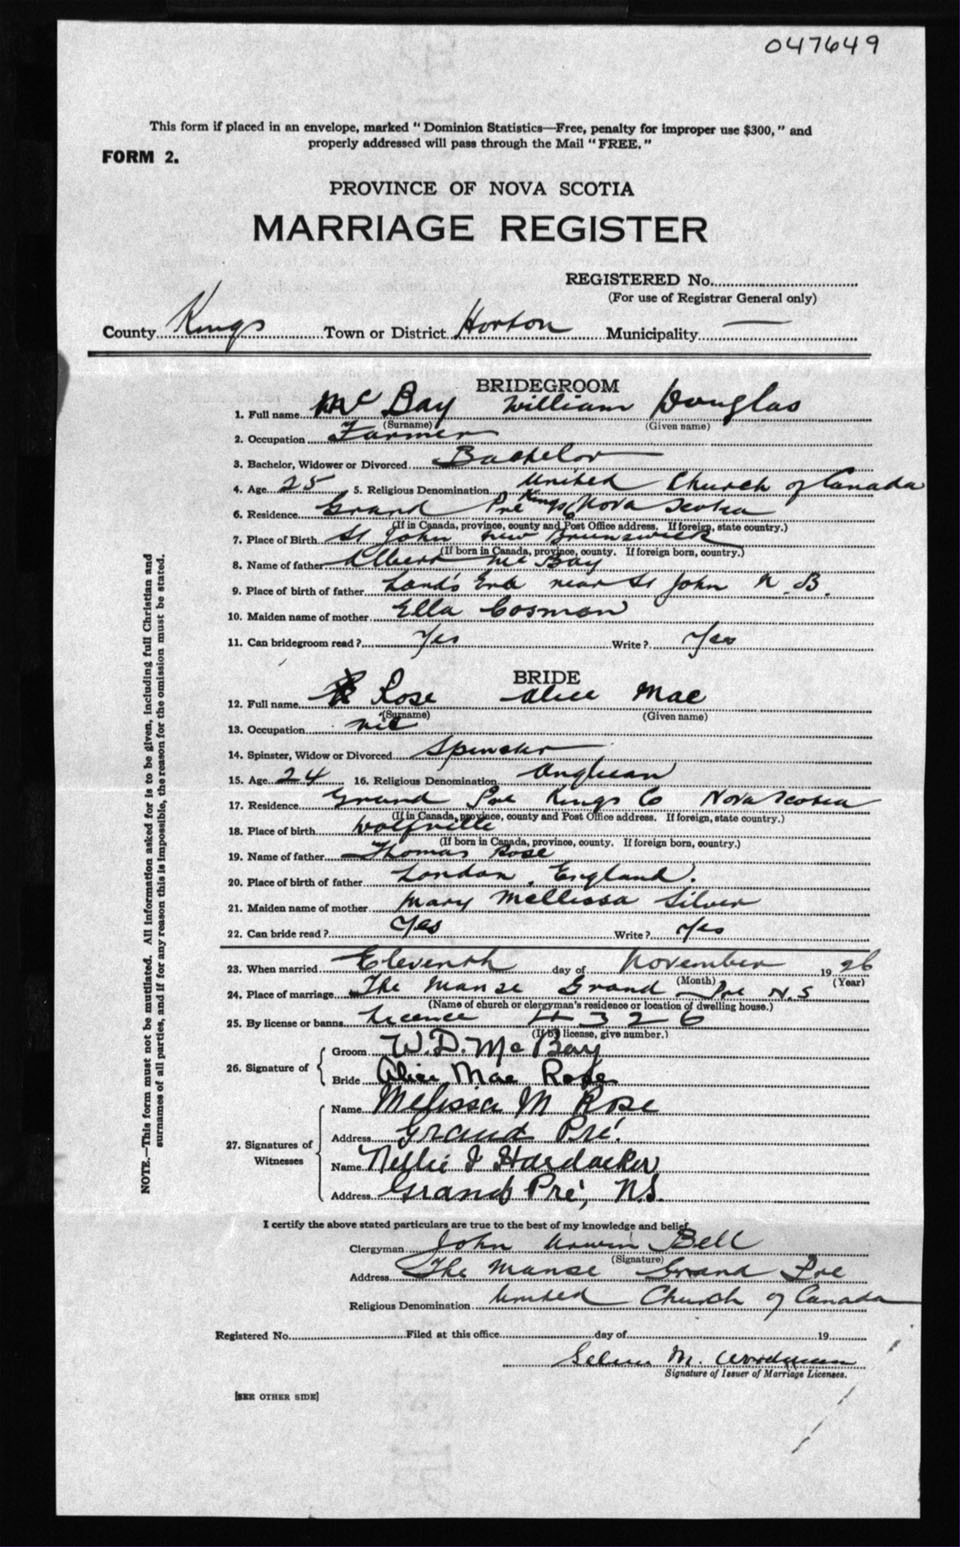 047649
This form if placed in an envelope, marked "Dominion Statistics—Free, penalty for improper use $300," and
properly addressed will pass through the Mail "FREE."
FORM 2.
PROVINCE OF NOVA SCOTIA
MARRIAGE REGISTER
REGISTERED No.
(For use of Registrar General only)
County Kings Town or District Horton Municipality —
BRIDEGROOM
1. Full name McBay William Douglas
(Surname) (Given name)
2. Occupation Farmer
3. Bachelor, Widower or Divorced Bachelor
4. Age 25 5. Religious Denomination United Church of Canada
6. Residence Grand Pré Kings Nova Scotia
(If in Canada, province, county and Post Office address. If foreign, state country.)
7. Place of Birth St John New Brunswick
(If born in Canada, province, county. If foreign born, country.)
8. Name of father Albert McBay
9. Place of birth of father Land's End near St John N.B.
10. Maiden name of mother Ella Cosman
11. Can bridegroom read? Yes Write? Yes
BRIDE
12. Full name Rose Alice Mae
(Surname) (Given name)
13. Occupation nil
14. Spinster, Widow or Divorced Spinster
15. Age 24 16. Religious Denomination Anglican
17. Residence Grand Pre Kings Co Nova Scotia
(If in Canada, province, county and Post Office address. If foreign, state country.)
18. Place of birth Wolfville
(If born in Canada, province, county. If foreign born, country.)
19. Name of father Thomas Rose
20. Place of birth of father London, England.
21. Maiden name of mother Mary Mellissa Silver
22. Can bride read? Yes Write? Yes
23. When married Eleventh day of November 1926
(Month) (Year)
24. Place of marriage The Manse Grand Pre N.S
(Name of church or clergyman's residence or location of dwelling house.)
25. By license or banns licence # 326
(If by license, give number.)
26. Signature of
Groom W. D. McBay
Bride Alice Mae Rose
27. Signatures of Witnesses
Name Melissa M Rose
Address Grand Pré.
Name Nellie I Hardacker
Address Grand Pré, N.S.
I certify the above stated particulars are true to the best of my knowledge and belief.
Clergyman John Unwin Bell
(Signature)
Address The Manse Grand Pre
Religious Denomination United Church of Canada
Registered No. Filed at this office day of 19
M. Woodman
Signature of Issuer of Marriage Licenses.
[SEE OTHER SIDE]
NOTE.—This form must not be mutilated. All information asked for is to be given, including full Christian and
surnames of all parties, and if for any reason this is impossible, the reason for the omission must be stated.